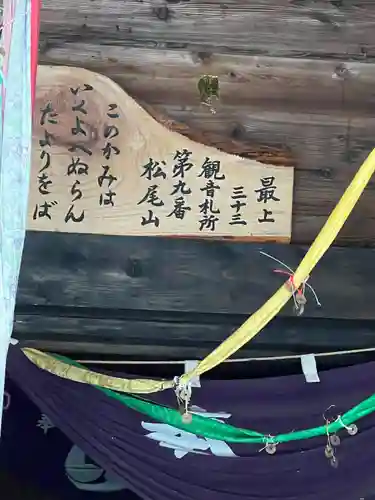 最上
三十三
観音札所
第九番
松尾山
このかみは
いくよへぬらん
たよりをば